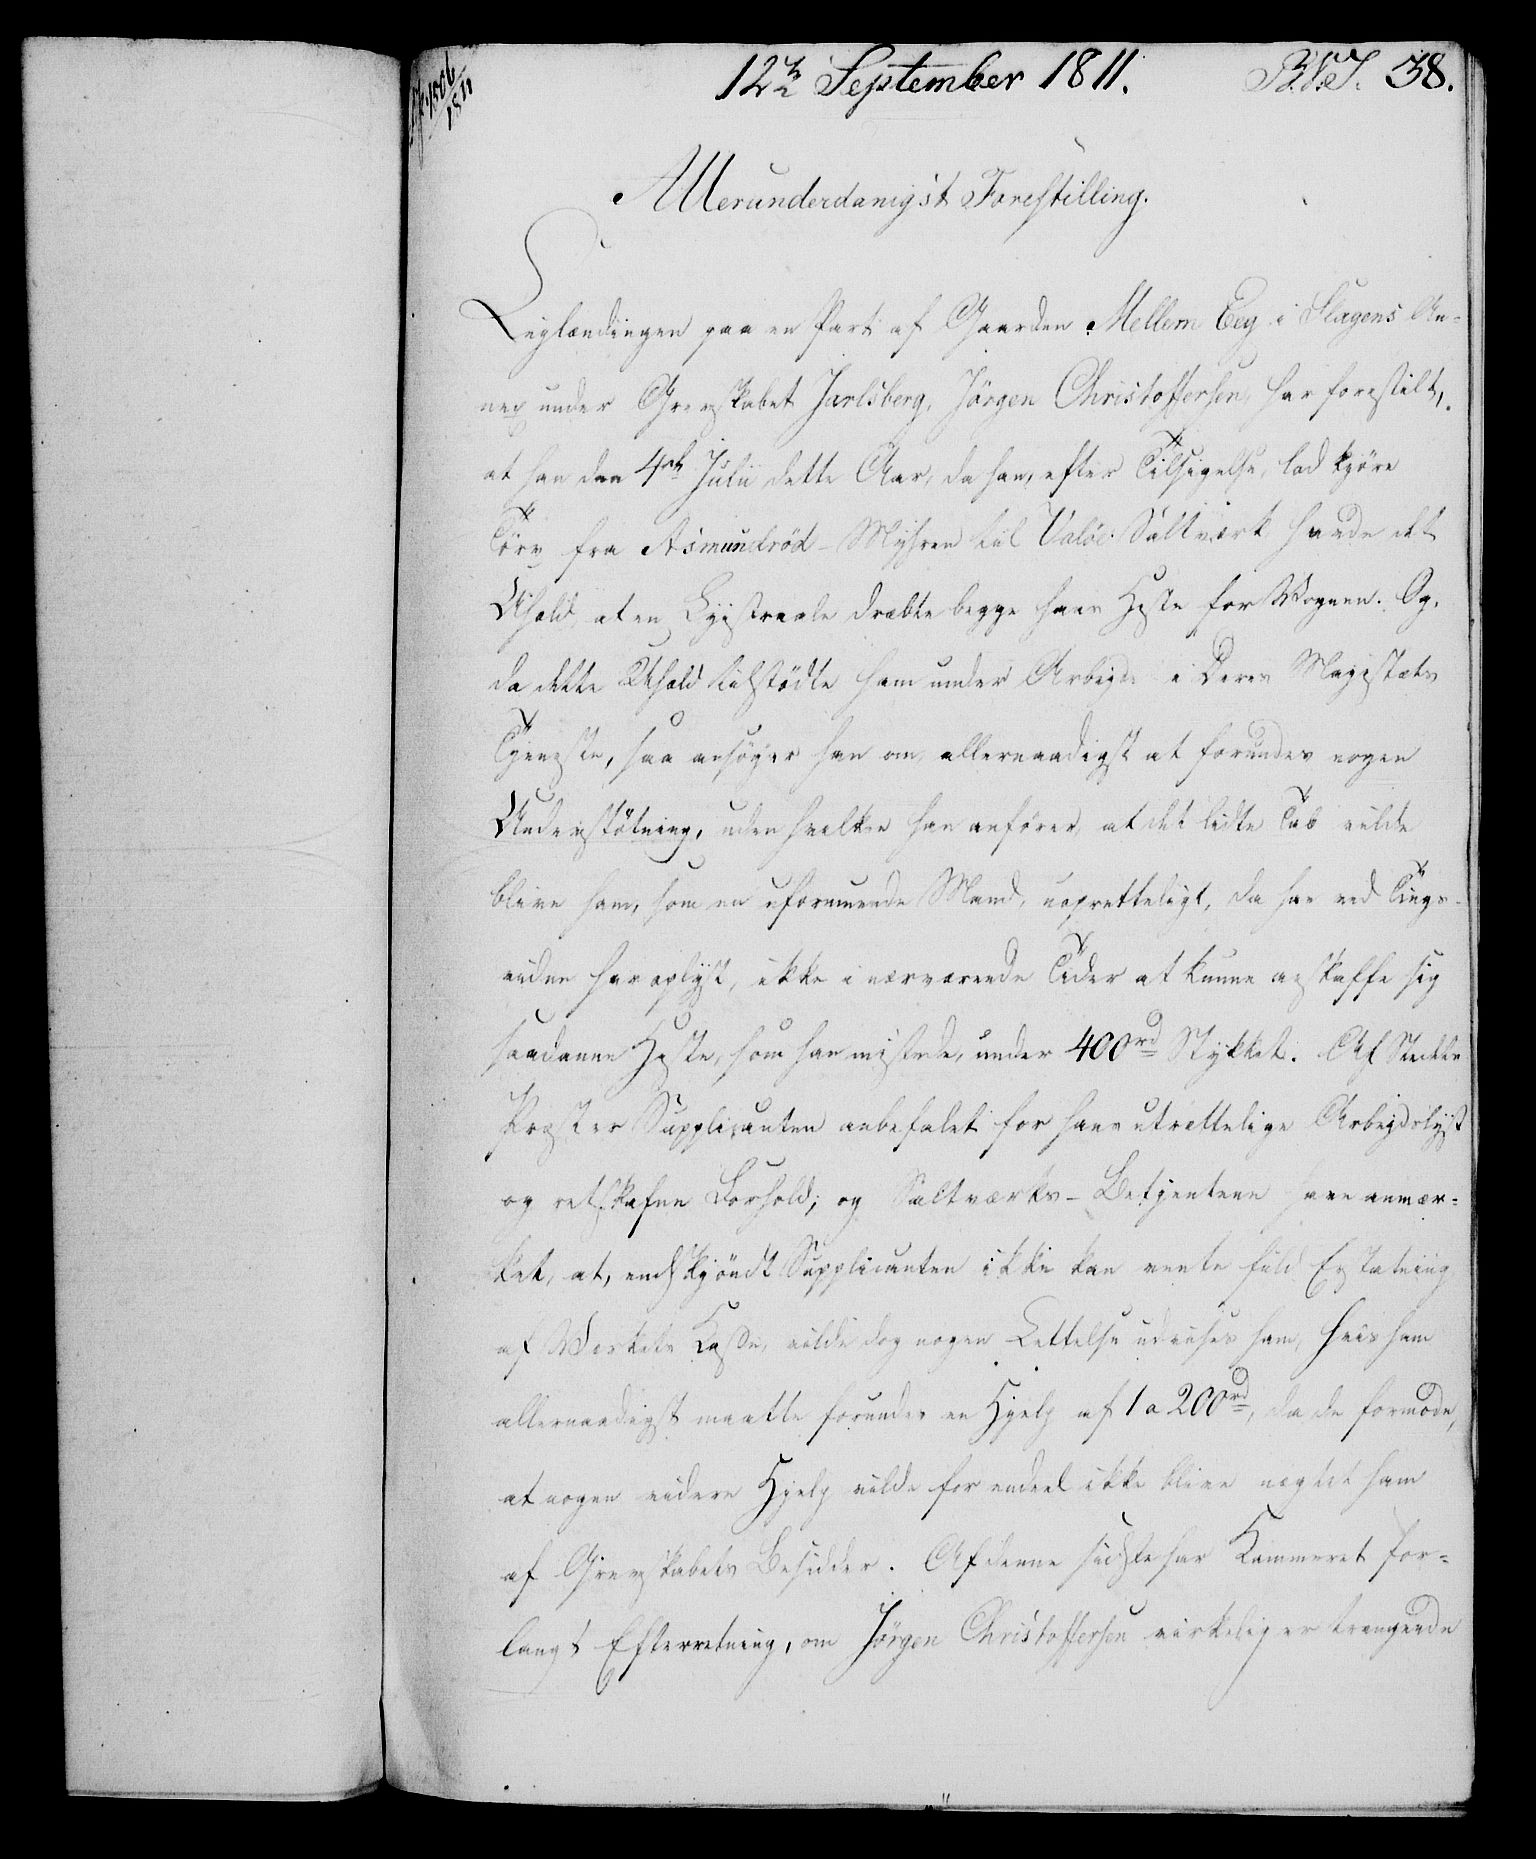 12te September 1811.
38.
Allerunderdanigst Forestilling.
Leylændingen paa en Part af Gaarden Mellem Eeg i Slagens An-
nex under Grevskabet Jarlsberg, Jörgen Christoffersen, har forestilt,
at han den 4de Julii dette Aar, da han, efter Tilsigelse, lod kjöre
Törv fra Asmundröd-Myhren til Valöe Saltværk havde det
Uheld, at en Lynstraale dræbte begge hans Heste for Vognen. Og,
da dette Uheld tilstödte ham under Arbeyde i Deres Majestæts
Tjeneste, saa ansöger han om, allernaadigst at forundes nogen
Understötning, uden hvilken han anförer, at det lidte Tab vilde
blive ham, som en uformuende Mand, uopretteligt, da han ved Tings-
vidne har oplyst, ikke i nærværende Tider at kunne anskaffe sig
saadanne Heste, som han mistede, under 400rd Stykket. Af Stedets
Præst er Supplicanten anbefalet for hans utrættelige Arbeydslyst
og retskafne Forhold; og Saltværks-Betjentene have anmær-
ket, at, endskjöndt Supplicanten ikke kan vente fuld Erstatning
af Værkets Kasse, vilde dog nogen Lettelse udvises ham, hvis ham
allernaadigst maatte forundes en Hjelp af 1 a 200rd, da de formode,
at nogen videre Hjelp vilde for endeel ikke blive nægtet ham
af Grevskabets Besidder. Af denne sidste har Kammeret for-
langt Efterretning, om Jörgen Christoffersen virkelig er trængende